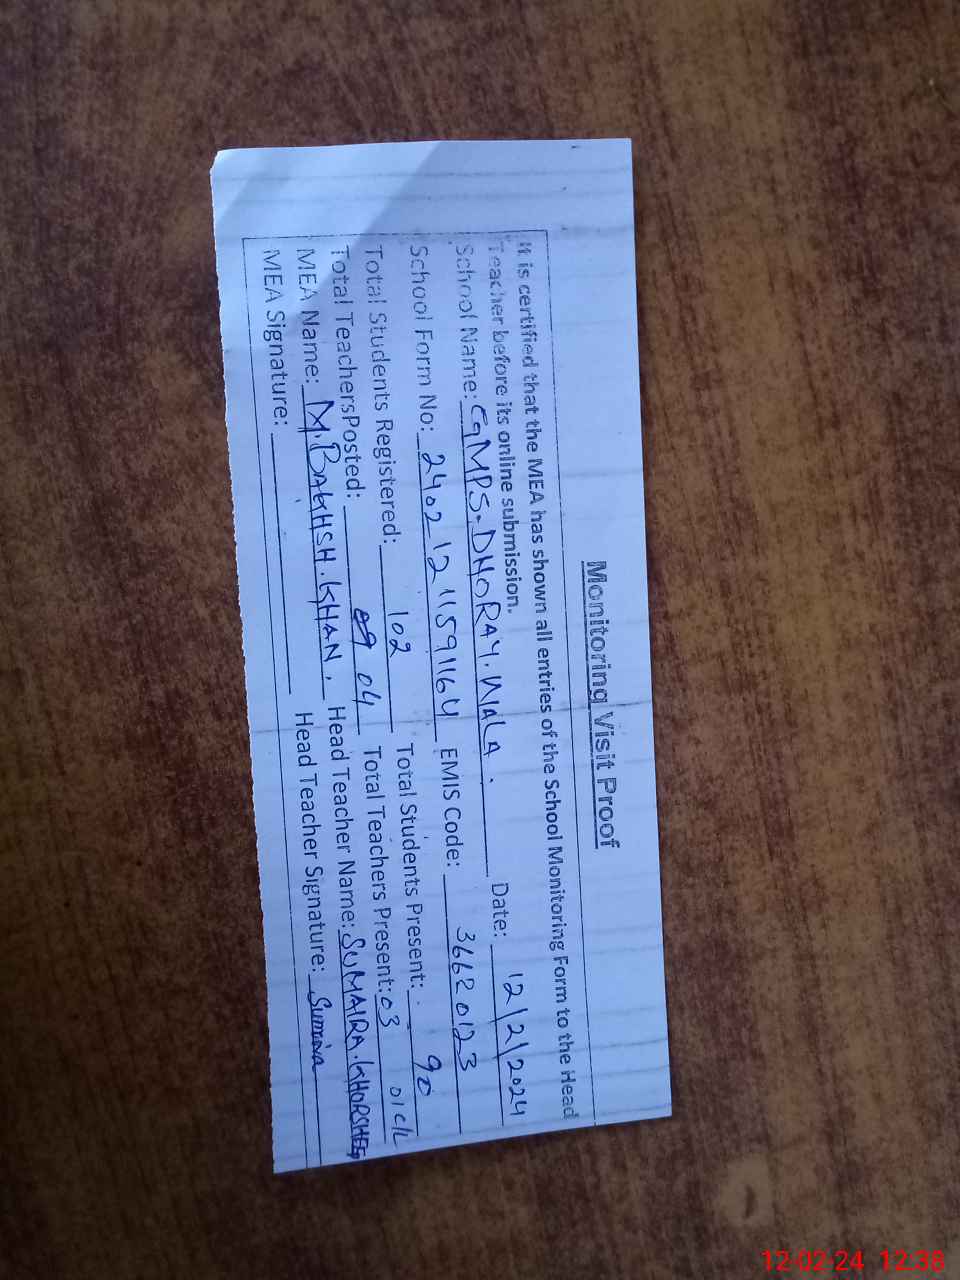 Monitoring Visit Proof
It is certified that the MEA has shown all entries of the School Monitoring Form to the Head
Teacher before its online submission.
School Name: GMPS.DHORAY.WALA. Date: 12/2/2024
School Form No: 2402121159 1164 EMIS Code: 36620123
Total Students Registered: 102 Total Students Present: 90
Total TeachersPosted: 04 Total Teachers Present: 03 01 C/L
MEA Name: M.BAKHSH.KHAN. Head Teacher Name: SUMAIRA.KHORSHEED
MEA Signature: Head Teacher Signature: Sumaira
12-02-24 12:38